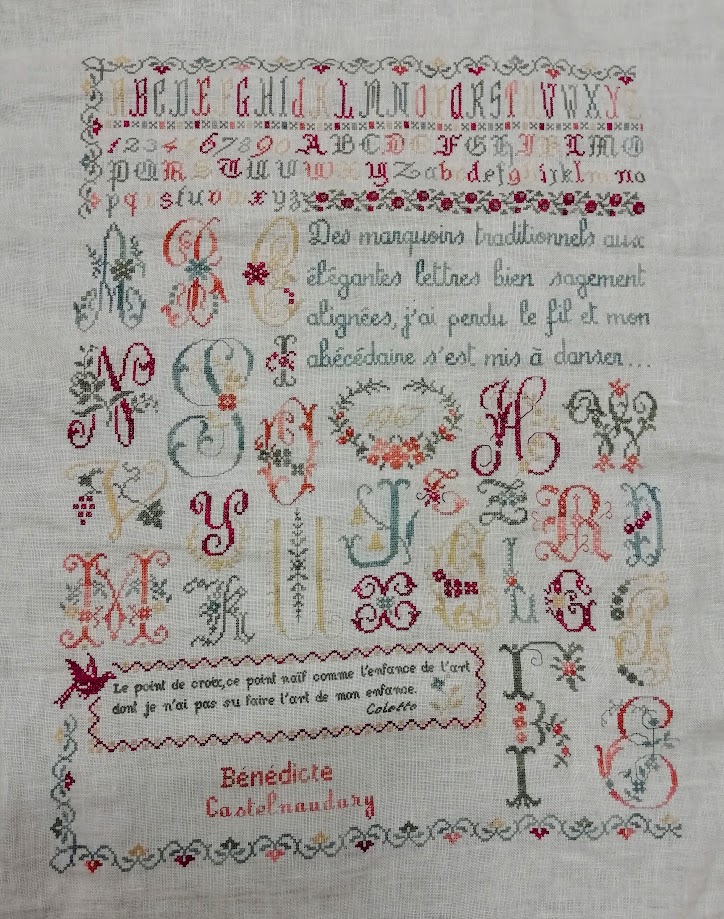 ABCDEFGHIJKLMNOPQRSTUVWXYZ
1234567890 ABCDEFGHIJKLMO
PQRSTUVWXYZabcdefgijklmno
pqrstuvwxyz
Des marquoirs traditionnels aux
élégantes lettres bien sagement
alignées, j'ai perdu le fil et mon
abécédaire s'est mis à danser...
A B C
N S I
O 1967 H W
V Y U J E Z R D
M K X Q L G
F
P
I E
Le point de croix, ce point naïf comme l'enfance de l'art
dont je n'ai pas su faire l'art de mon enfance.
Colette
Bénédicte
Castelnaudary